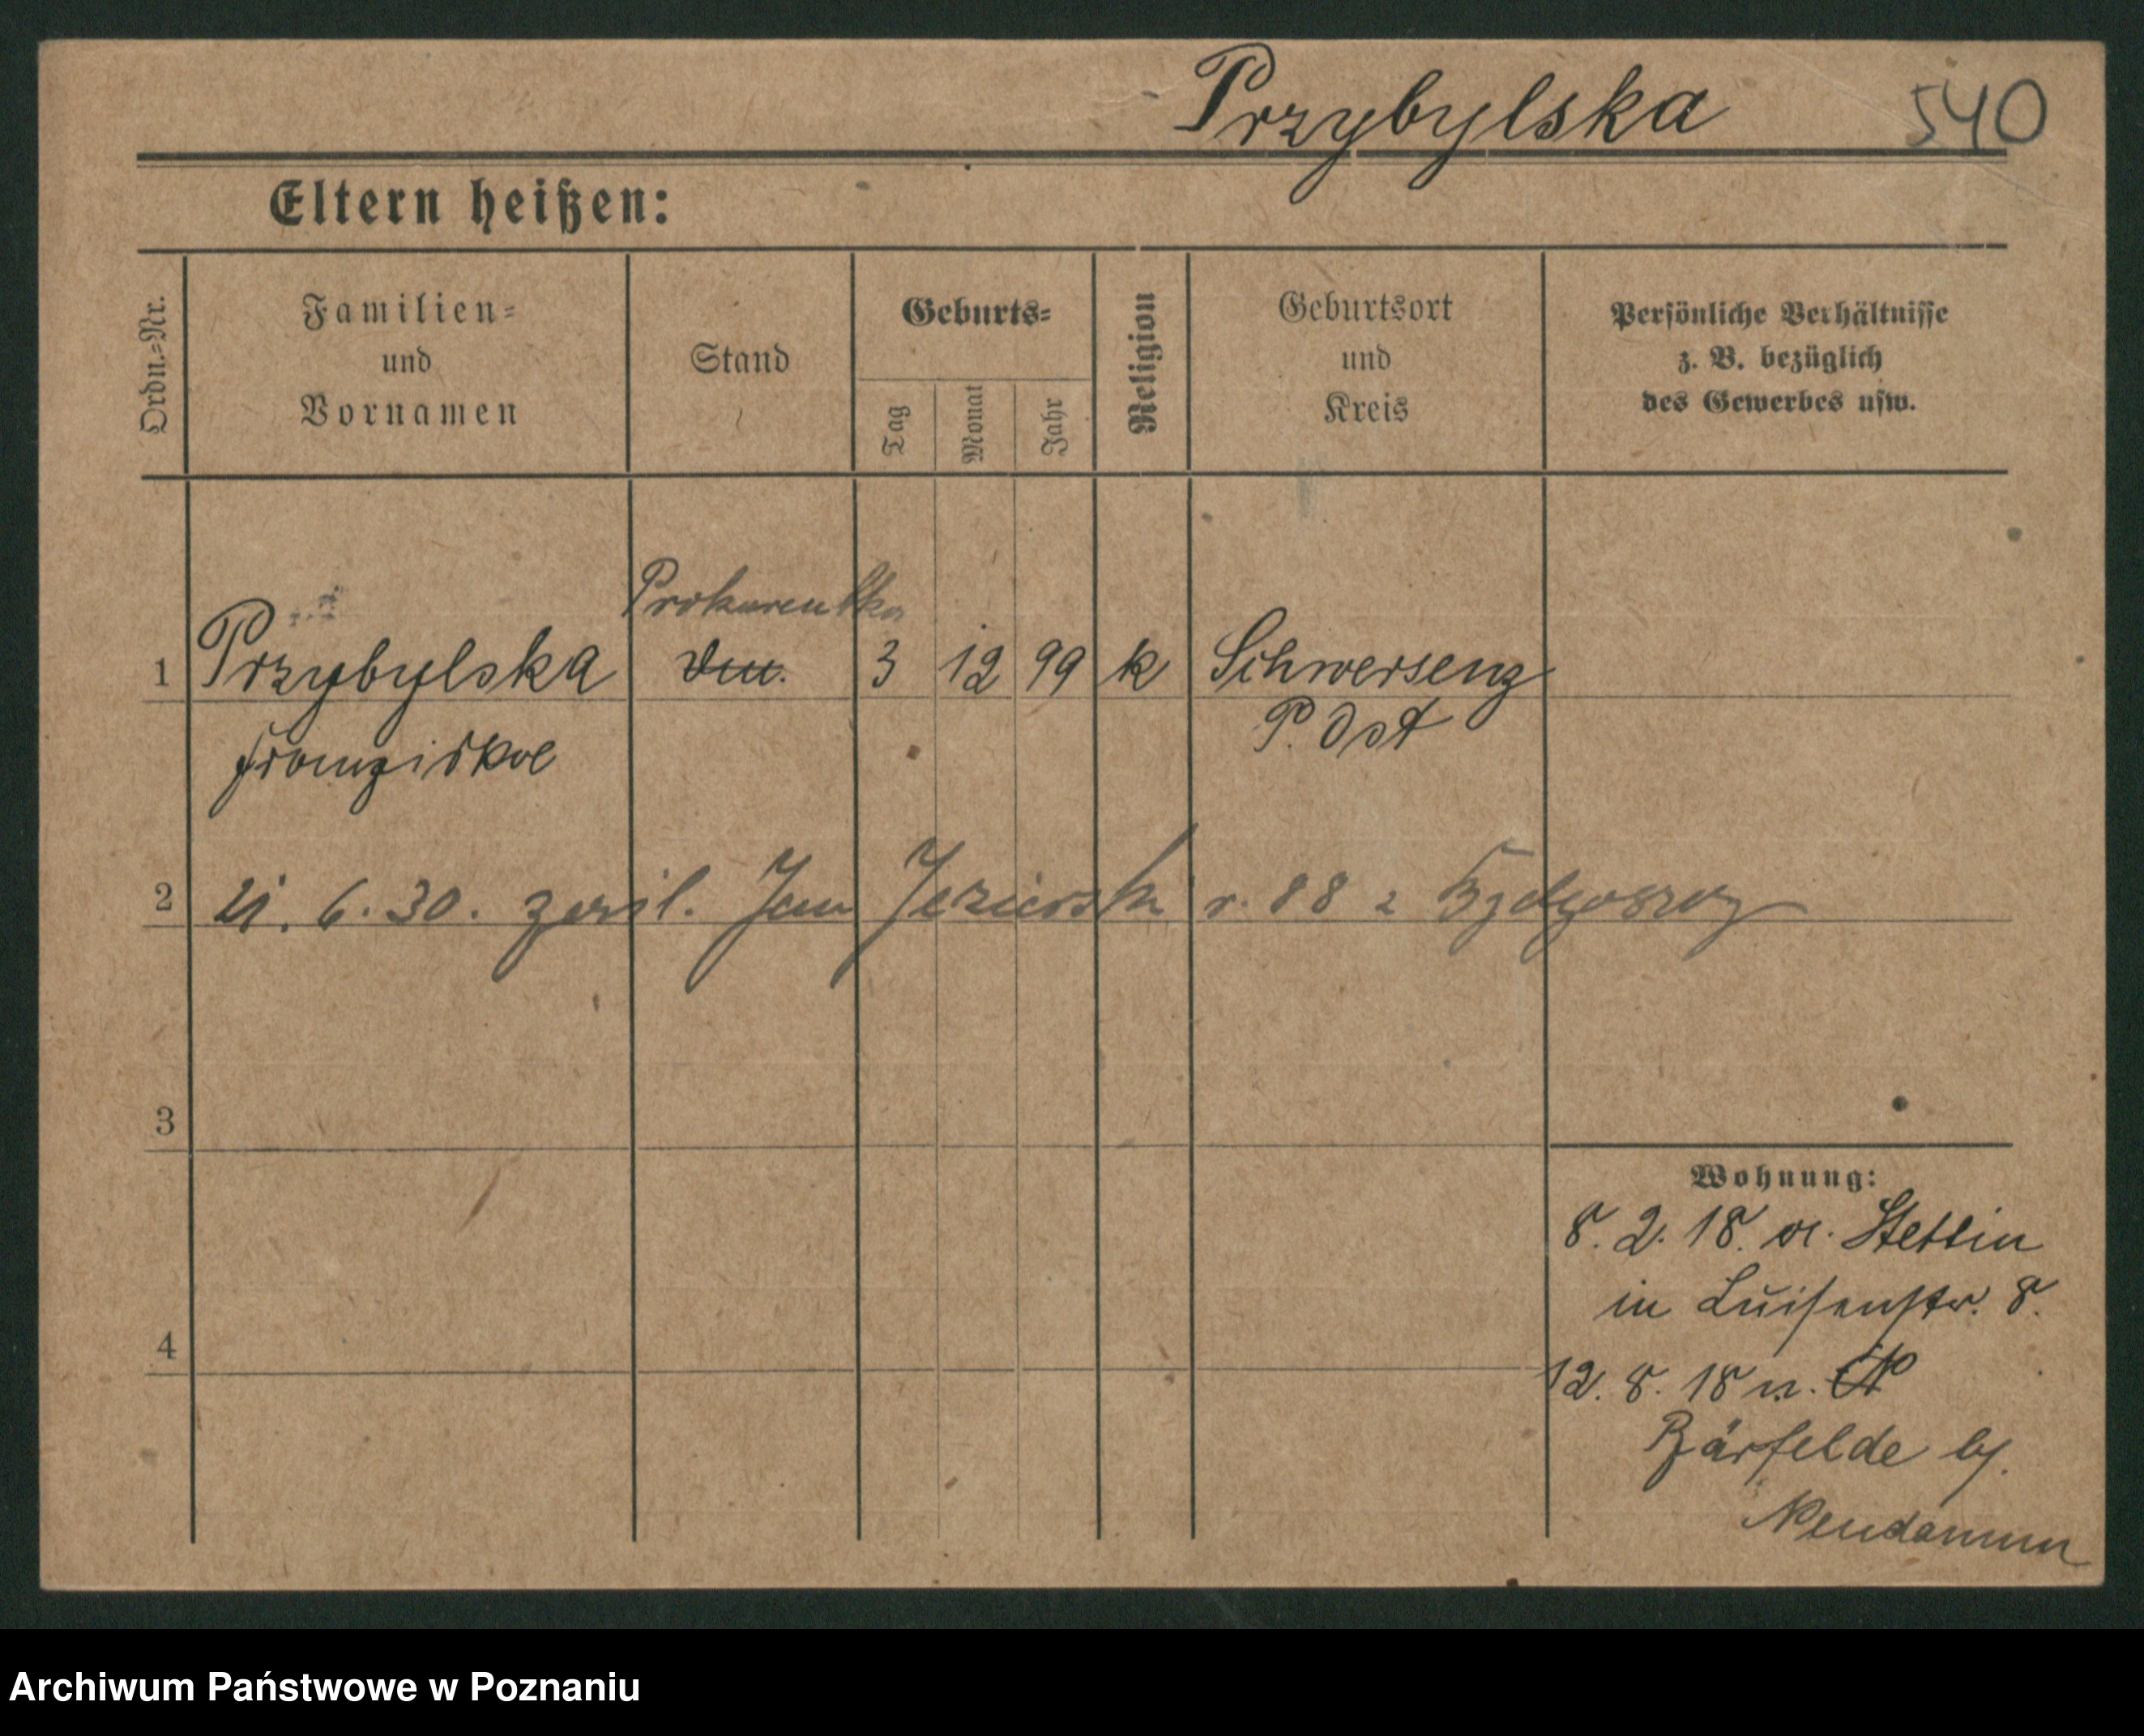 Przybylska 540
Eltern heißen:
Ordn.-Nr.
Familien-
und
Vornamen
Stand
Geburts-
Tag
Monat
Jahr
Religion
Geburtsort
und
Kreis
Persönliche Verhältnisse
z. B. bezüglich
des Gewerbes usw.
Prokurentka
1 Przybylska 3 12 99 k Schwersenz
Franziska P. Ost
2 21. 6. 30. Jan r. 88 z Bydgoszczy
3
Wohnung:
8. 2. 18. Stettin
in Luisenstr. 8.
4
12. 8. 18 n.
Bärfelde b/.
Neudamm
Archiwum Państwowe w Poznaniu